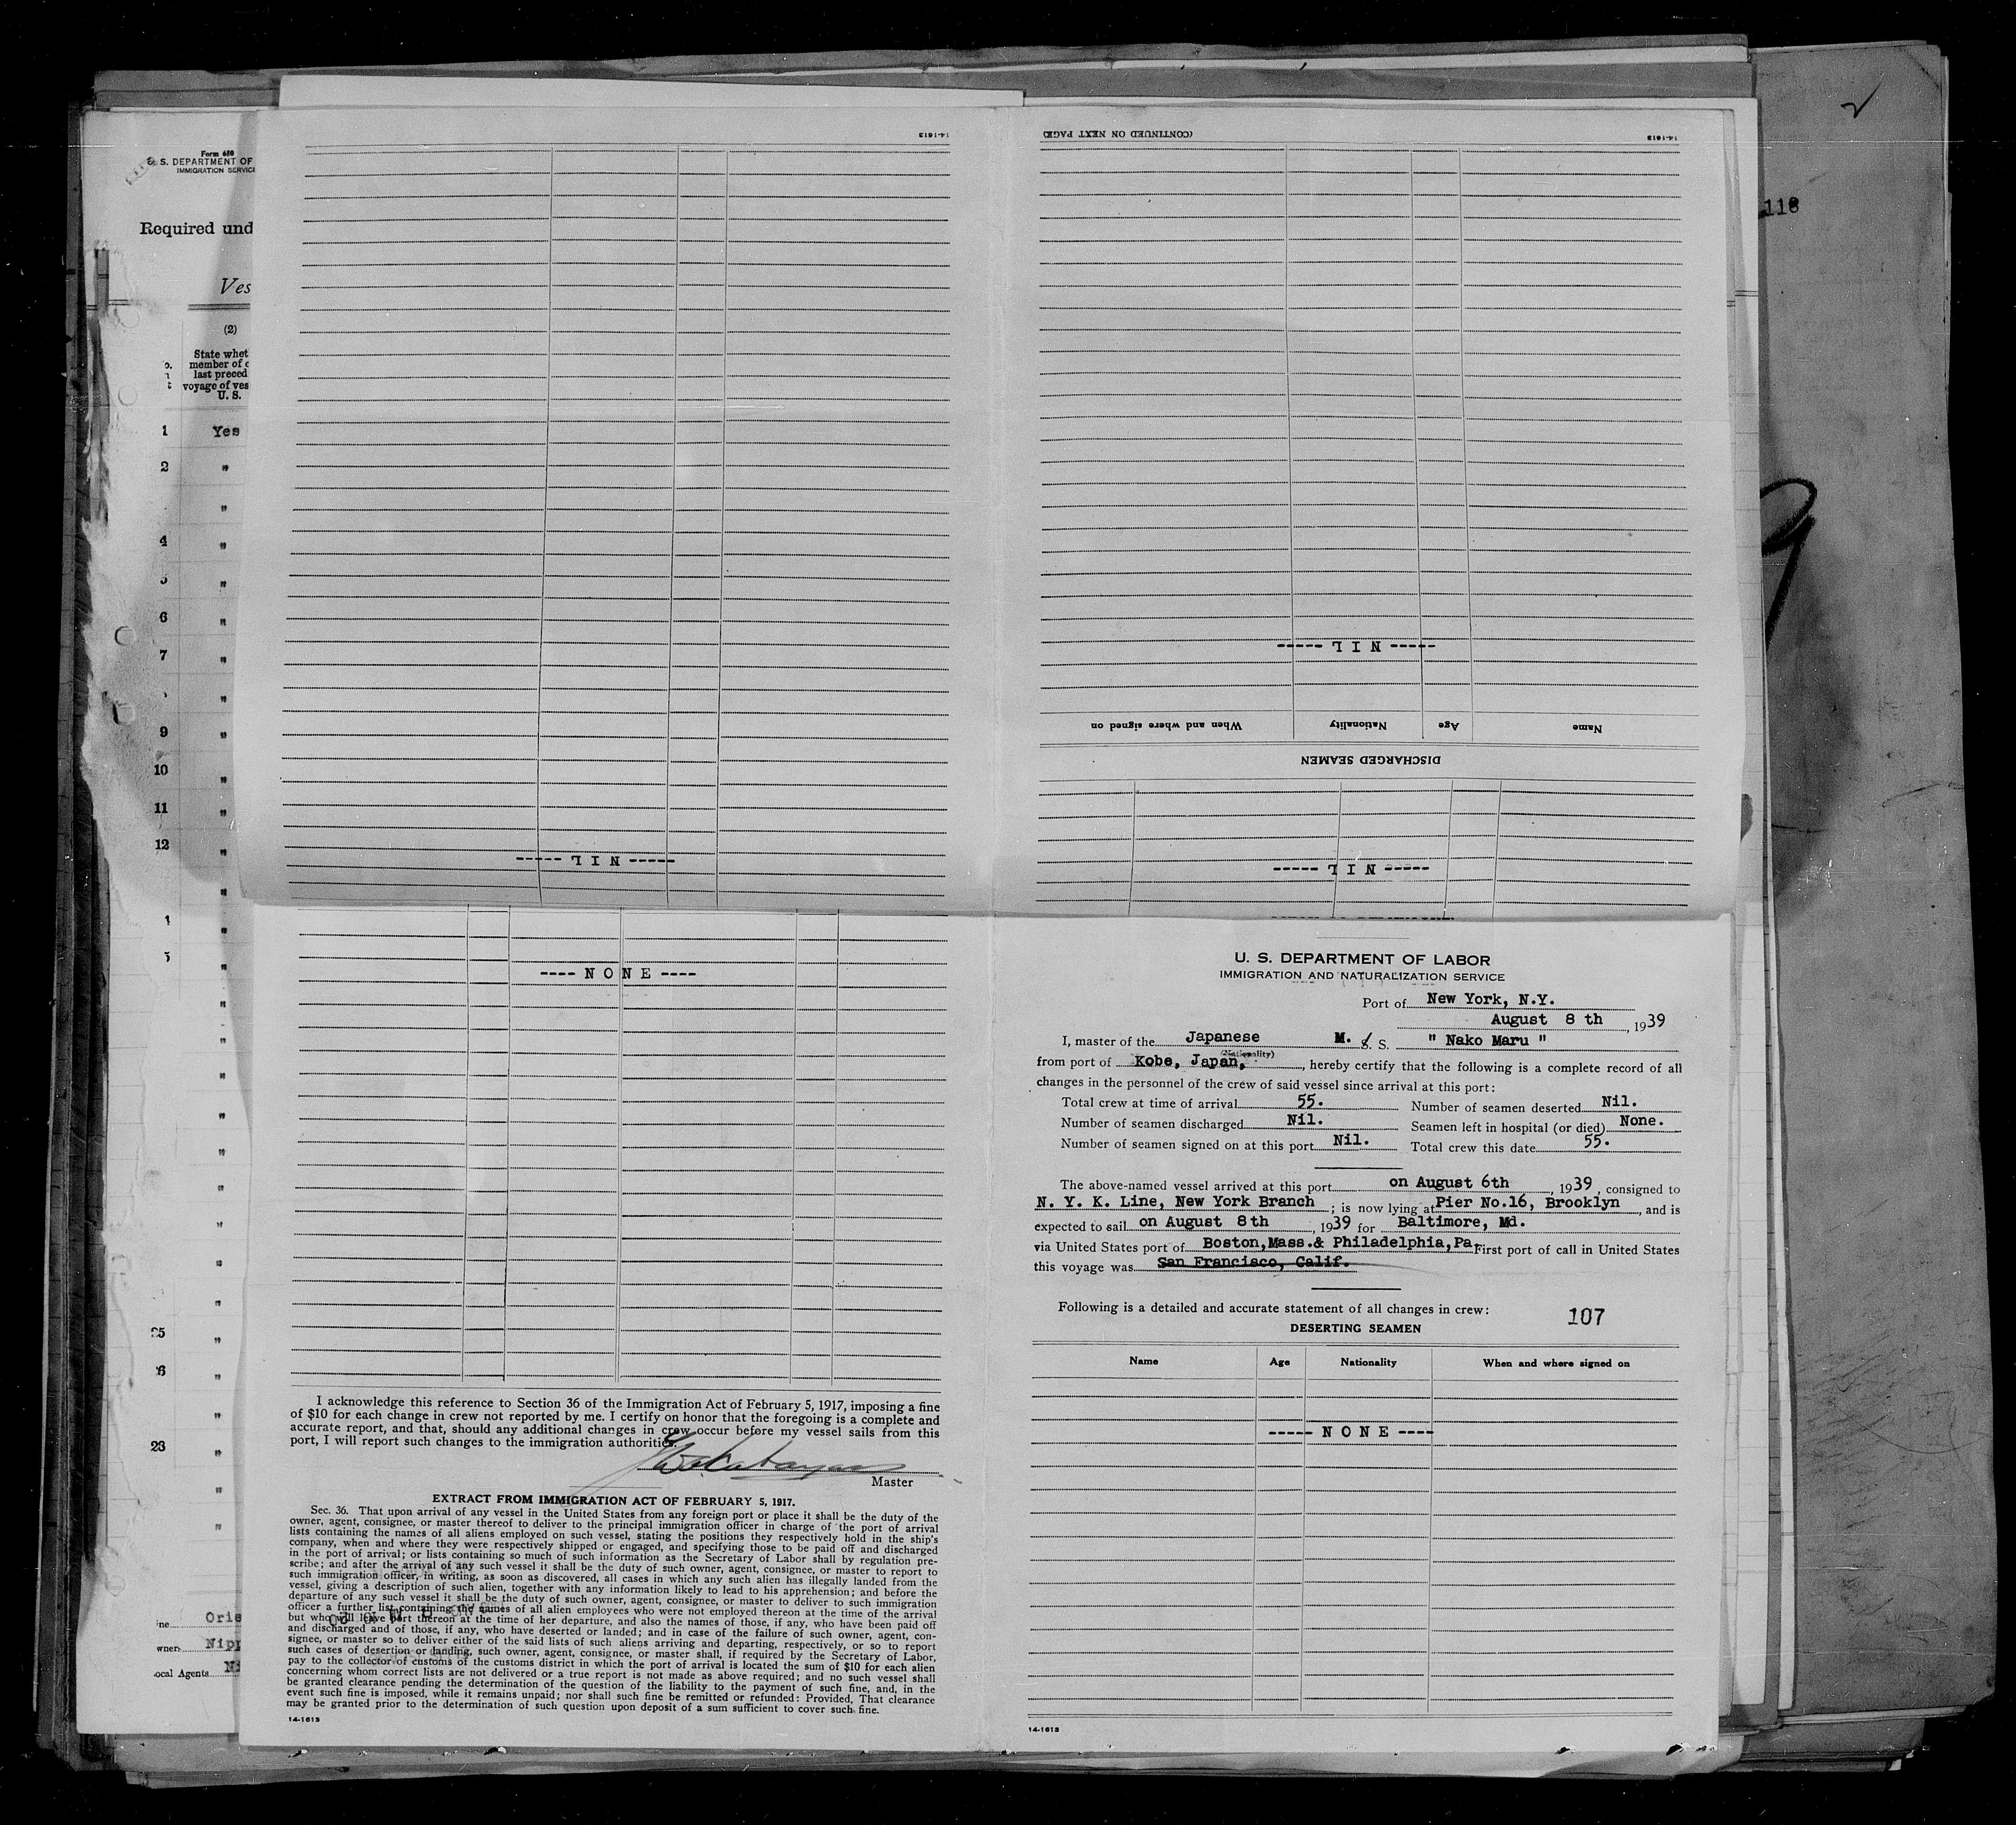 Form 689
U. S. DEPARTMENT OF
IMMIGRATION SERVICE
Required und
Ves
(2)
State whet
member of c
last preced
voyage of ves
U. S.
1 Yes
2 "
"
4 "
5 "
6 "
7 "
"
9 "
10 "
11 "
12 "
25 "
26 "
28 "
Orie
wners Nipp
ocal Agents
118
14-1613
----- N I L -----
(CONTINUED ON NEXT PAGE)
14-1613
----- N I L -----
Name Age Nationality When and where signed on
DISCHARGED SEAMEN
----- N I L -----
---- N O N E ----
I acknowledge this reference to Section 36 of the Immigration Act of February 5, 1917, imposing a fine
of $10 for each change in crew not reported by me. I certify on honor that the foregoing is a complete and
accurate report, and that, should any additional changes in crew occur before my vessel sails from this
port, I will report such changes to the immigration authorities.
Master
EXTRACT FROM IMMIGRATION ACT OF FEBRUARY 5, 1917.
Sec. 36. That upon arrival of any vessel in the United States from any foreign port or place it shall be the duty of the
owner, agent, consignee, or master thereof to deliver to the principal immigration officer in charge of the port of arrival
lists containing the names of all aliens employed on such vessel, stating the positions they respectively hold in the ship's
company, when and where they were respectively shipped or engaged, and specifying those to be paid off and discharged
in the port of arrival; or lists containing so much of such information as the Secretary of Labor shall by regulation pre-
scribe; and after the arrival of any such vessel it shall be the duty of such owner, agent, consignee, or master to report to
such immigration officer, in writing, as soon as discovered, all cases in which any such alien has illegally landed from the
vessel, giving a description of such alien, together with any information likely to lead to his apprehension; and before the
departure of any such vessel it shall be the duty of such owner, agent, consignee, or master to deliver to such immigration
officer a further list containing the names of all alien employees who were not employed thereon at the time of the arrival
but who will leave port thereon at the time of her departure, and also the names of those, if any, who have been paid off
and discharged and of those, if any, who have deserted or landed; and in case of the failure of such owner, agent, con-
signee, or master so to deliver either of the said lists of such aliens arriving and departing, respectively, or so to report
such cases of desertion or landing, such owner, agent, consignee, or master shall, if required by the Secretary of Labor,
pay to the collector of customs of the customs district in which the port of arrival is located the sum of $10 for each alien
concerning whom correct lists are not delivered or a true report is not made as above required; and no such vessel shall
be granted clearance pending the determination of the question of the liability to the payment of such fine, and, in the
event such fine is imposed, while it remains unpaid; nor shall such fine be remitted or refunded: Provided, That clearance
may be granted prior to the determination of such question upon deposit of a sum sufficient to cover such fine.
14-1613
U. S. DEPARTMENT OF LABOR
IMMIGRATION AND NATURALIZATION SERVICE
Port of New York, N.Y.
August 8 th, 1939
I, master of the Japanese M. S. S. " Nako Maru "
(Nationality)
from port of Kobe, Japan, , hereby certify that the following is a complete record of all
changes in the personnel of the crew of said vessel since arrival at this port:
Total crew at time of arrival 55. Number of seamen deserted Nil.
Number of seamen discharged Nil. Seamen left in hospital (or died) None.
Number of seamen signed on at this port Nil. Total crew this date 55.
The above-named vessel arrived at this port on August 6th, 1939, consigned to
N. Y. K. Line, New York Branch ; is now lying at Pier No.16, Brooklyn, and is
expected to sail on August 8th, 1939 for Baltimore, Md.
via United States port of Boston,Mass.& Philadelphia,Pa. First port of call in United States
this voyage was San Francisco, Calif.
Following is a detailed and accurate statement of all changes in crew: 107
DESERTING SEAMEN
Name Age Nationality When and where signed on
----- N O N E ----
14-1613